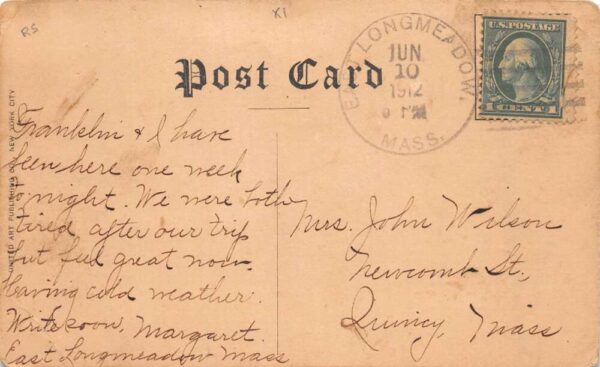 R5
XI
Post Card
EAST LONGMEADOW,
JUN
10
1912
6 PM
MASS.
U.S. POSTAGE
1 CENT 1
UNITED ART PUBLISHING CO. NEW YORK CITY
Franklin & I have
been here one week
tonight. We were both
tired after our trip
but feel great now.
Having cold weather.
Write soon, Margaret.
East Longmeadow Mass
Mrs. John Wilson
Newcomb St.,
Quincy, Mass